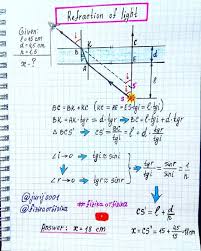 Refraction of light
Given:
l = 15 cm
d = 4,5 cm
n = 1,5
x - ?
BC = BK + KC (KC = AS = ES·tgi = l·tgi)
BK = AK·tgr = d·tgr → BC = l·tgi + d·tgr
Δ BCS' → CS' = BC/tgi = l + d·tgr/tgi
∠i → 0 → tgi ≈ sini
∠r → 0 → tgr ≈ sinr
tgr/tgi = sinr/sini = 1/n
@jurij8001
@fizikaorlfizika
#fizikaorlfizika
CS' = l + d/n
Answer: x = 18 cm
x = CS' = 15 + 4,5/1,5 = 18 cm